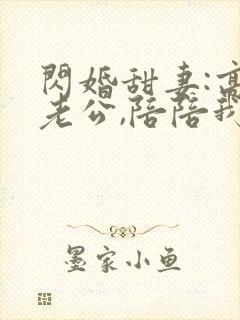 閃婚甜妻:高
老公,陪陪我
墨家小鱼